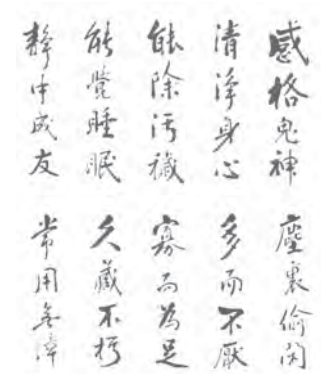 感格鬼神
清淨身心
能除污穢
能覺睡眠
靜中成友
塵裏偷閑
多而不厭
寡而為足
久藏不朽
常用無障